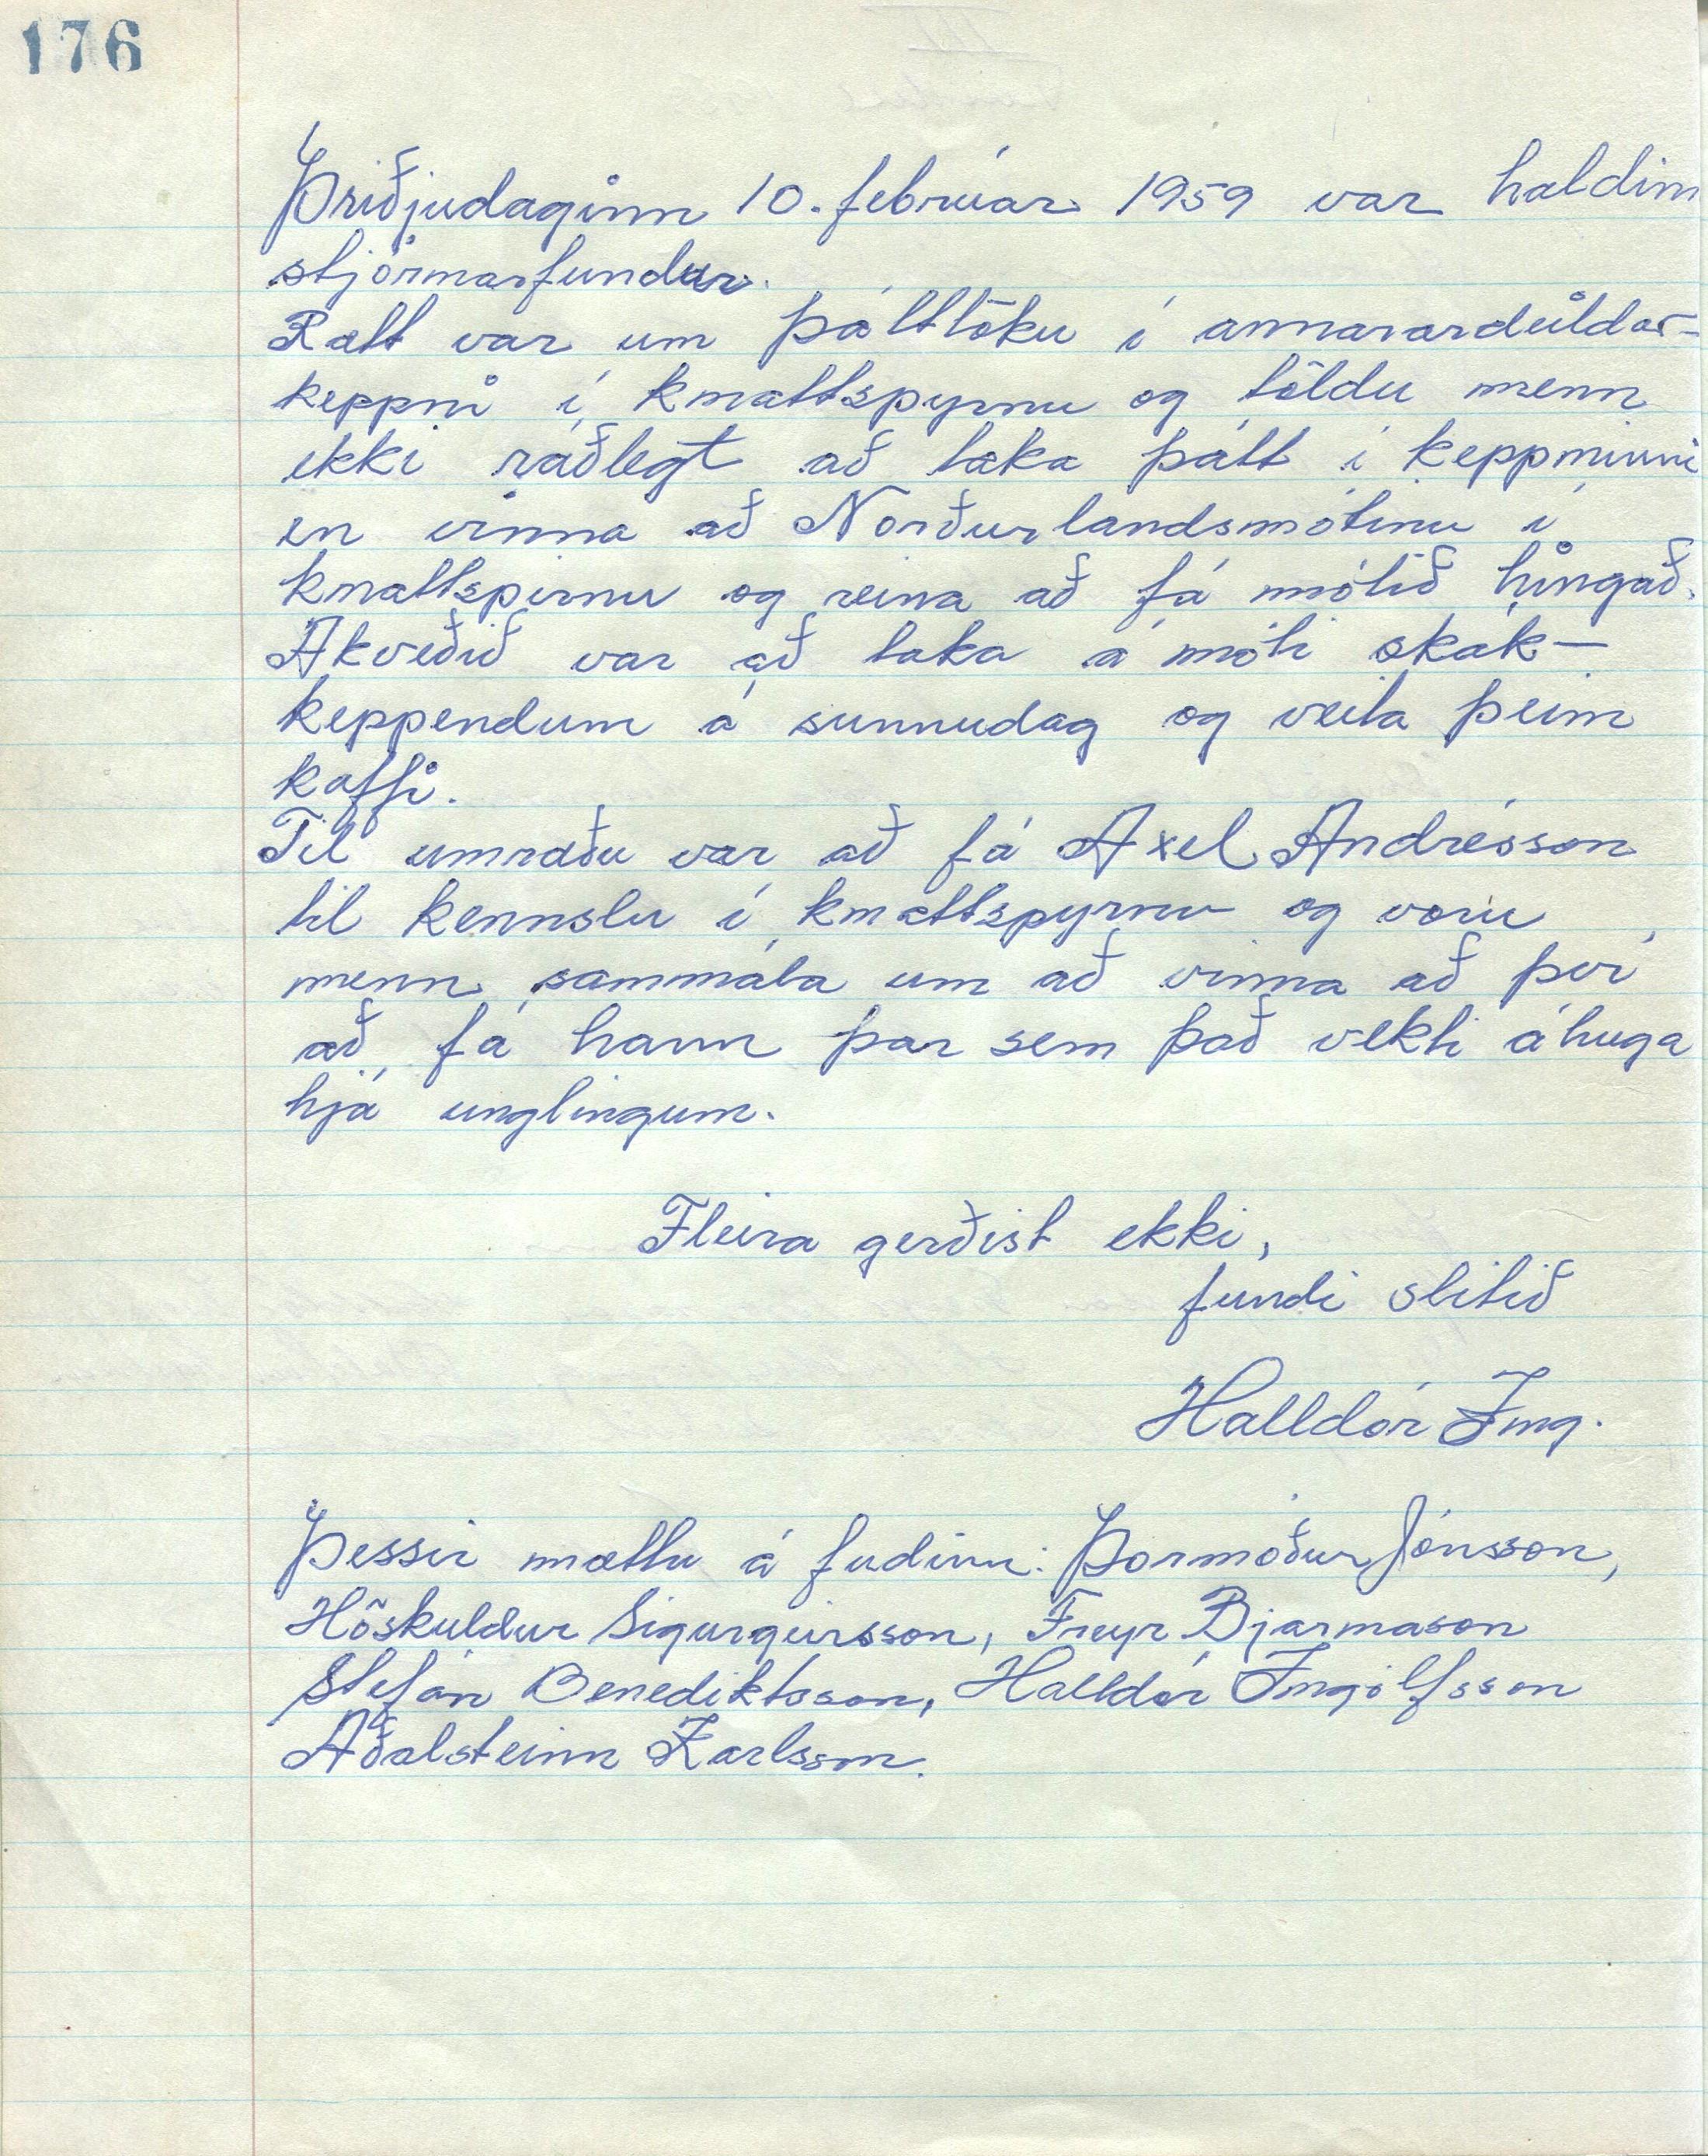 176
Þriðjudaginn 10. febrúar 1959 var haldinn
stjórnarfundur.
Rætt var um þátttöku í annarardeildar-
keppni í knattspyrnu og töldu menn
ekki ráðlegt að taka þátt í keppninni
en vinna að Norðurlandsmótinu í
knattspirnu og reina að fá mótið hingað.
Akveðið var að taka á móti skák-
keppendum á sunnudag og veita þeim
kaffi.
Til umræðu var að fá Axel Andrésson
til kennslu í knattspyrnu og voru
menn sammála um að vinna að því
að fá hann þar sem það vekti áhuga
hjá unglingum.
Fleira gerðist ekki,
fundi slitið
Halldór Ing.
Þessir mættu á fudinn: Þormóður Jónsson,
Höskuldur Sigurgeirsson, Freyr Bjarnason
Stefán Benediktsson, Halldór Ingólfsson
Aðalsteinn Karlsson.